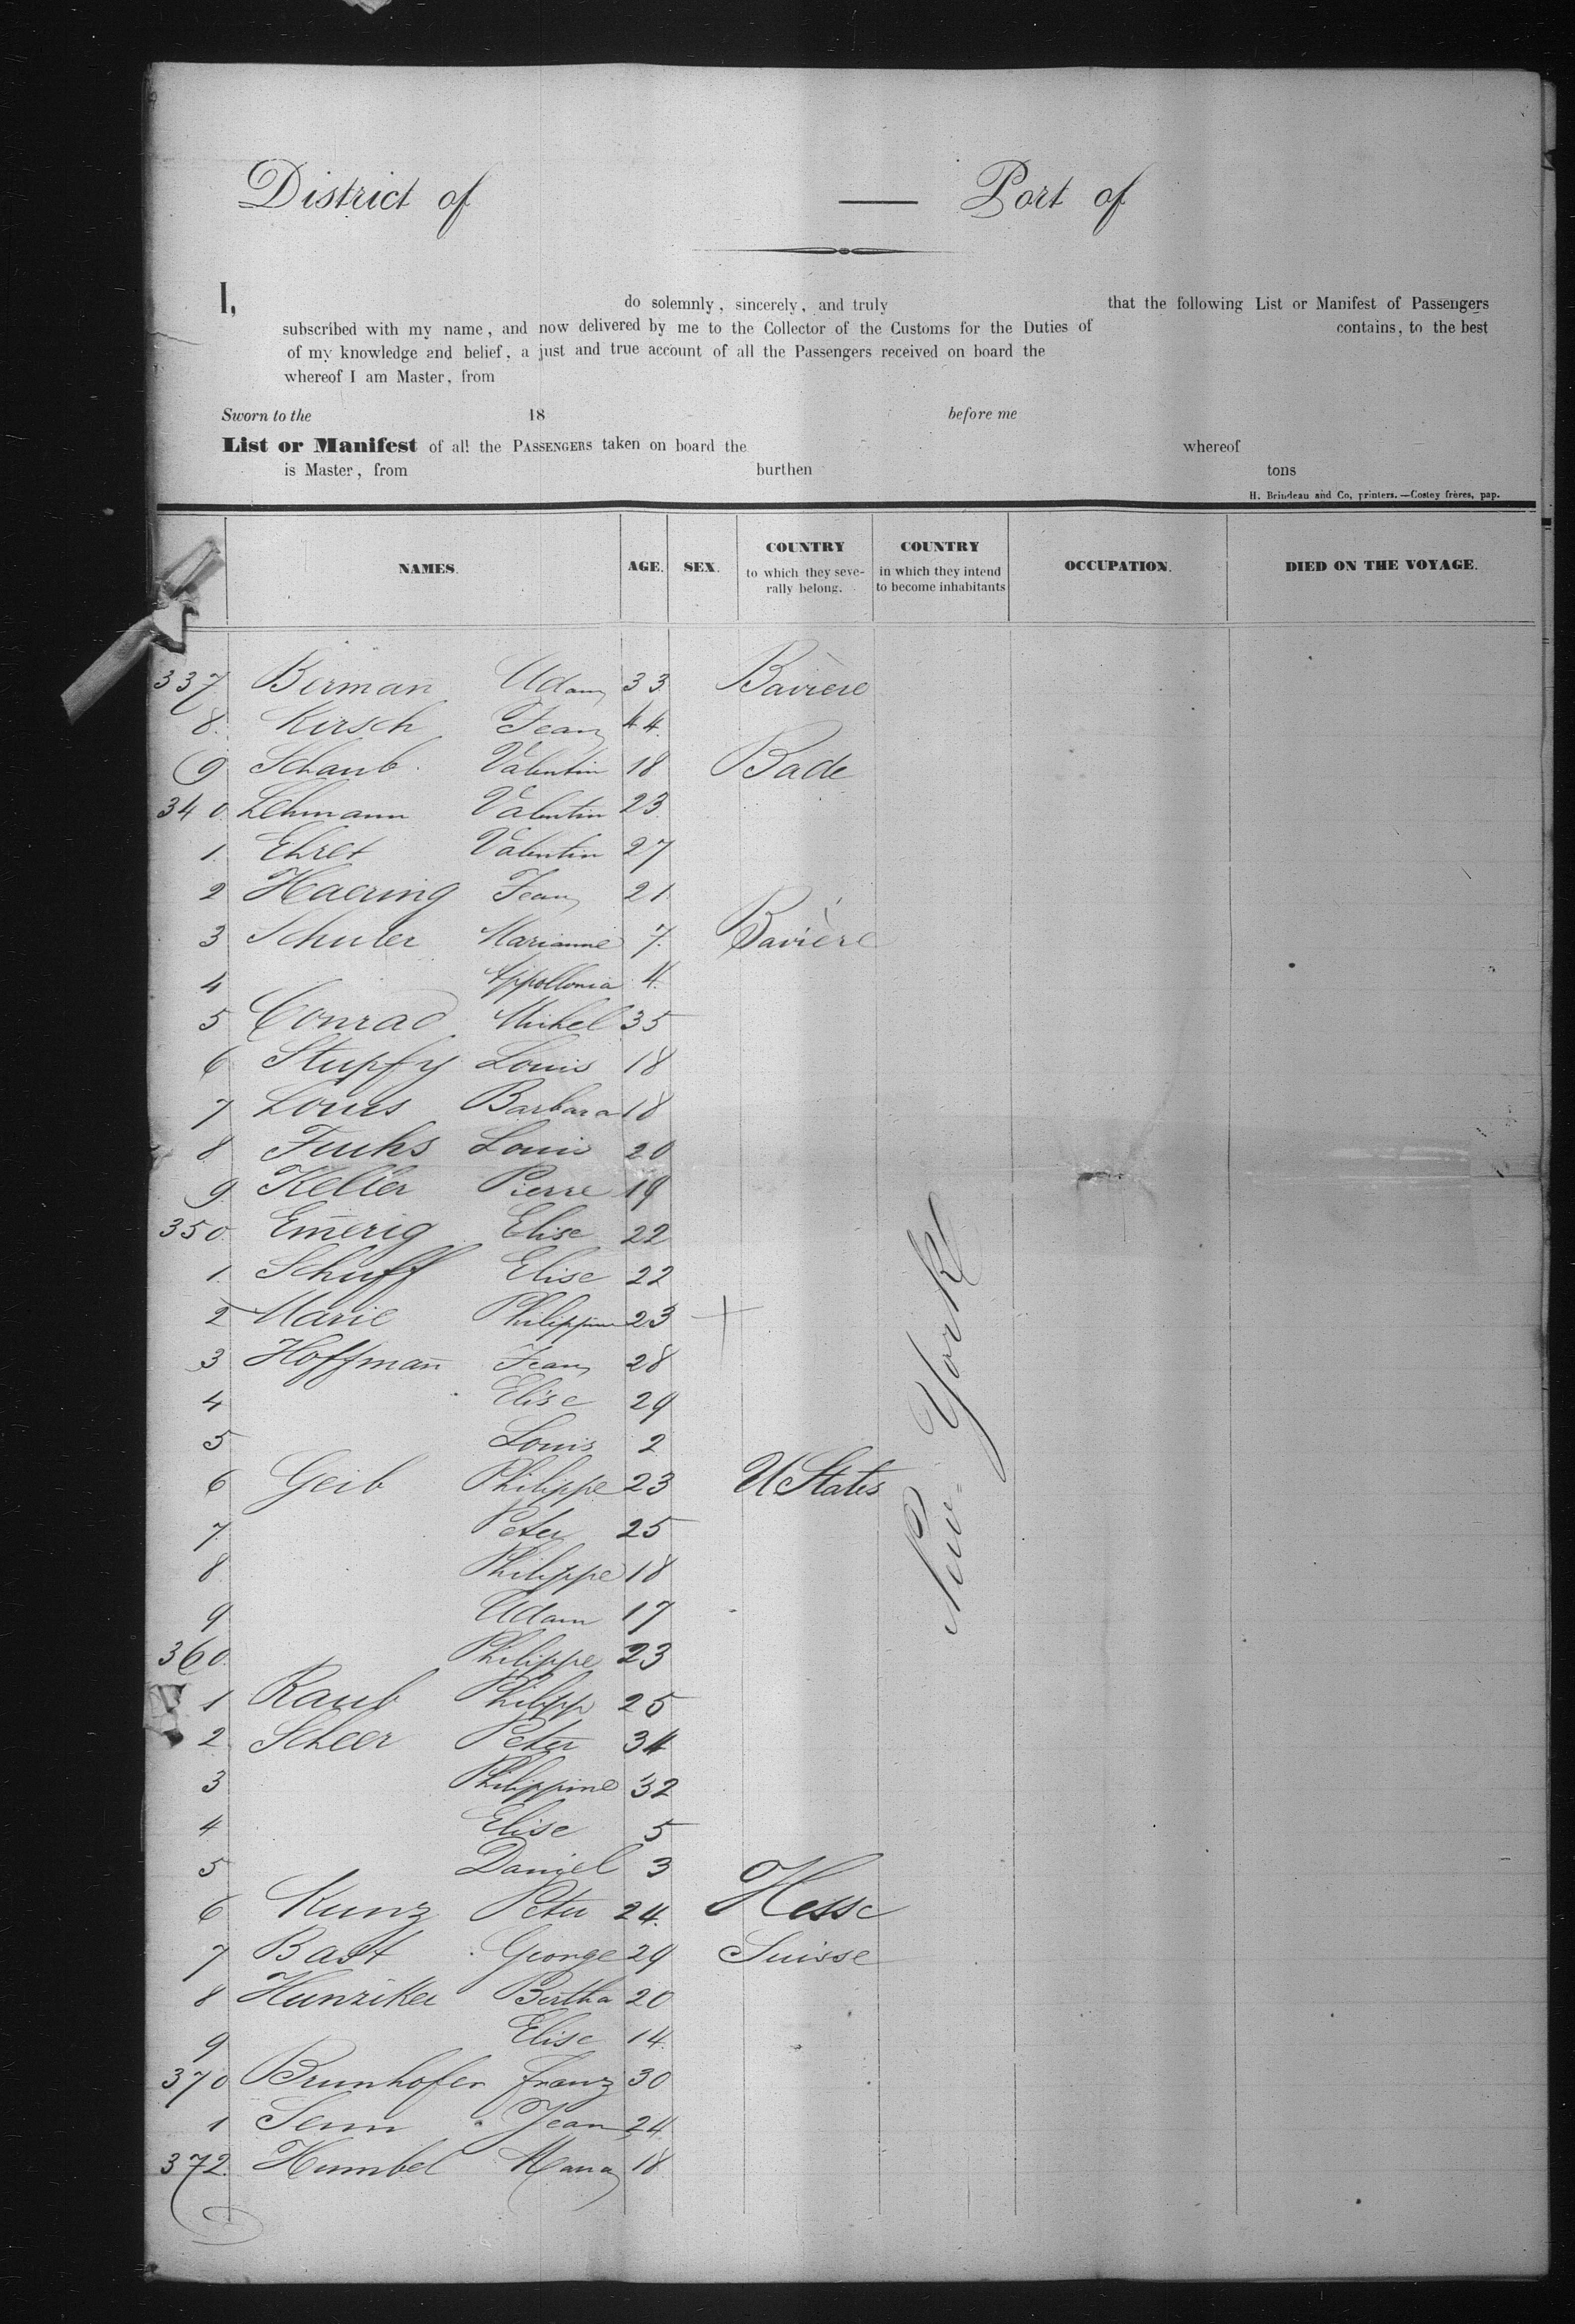 District of — Port of
I, do solemnly, sincerely, and truly that the following List or Manifest of Passengers
subscribed with my name, and now delivered by me to the Collector of the Customs for the Duties of contains, to the best
of my knowledge and belief, a just and true account of all the Passengers received on board the
whereof I am Master, from
Sworn to the 18 before me
List or Manifest of all the PASSENGERS taken on board the whereof
is Master, from burthen tons
H. Brindeau and Co, printers.—Costey frères, pap.
NAMES. AGE. SEX. COUNTRY to which they severally belong. COUNTRY in which they intend to become inhabitants OCCUPATION. DIED ON THE VOYAGE.
337 Berman̄ Adam 33 Bavière
8. Kirsch Jean 44.
9 Schaub. Valentin 18 Bade
340. Lehmann Valentin 23.
1. Ehret Valentin 27
2 Haering Jean 21
3 Schuler Marianne 7. Bavière
4 Appollonia 4.
5 Conrad Michel 35
6 Stupfy Louis 18
7 Louis Barbara 18
8 Fuchs Louis 20
9. Keller Pierre 19
350. Em̄erig Elise 22
1. Schuff Elise 22
2 Marie Philippine 23 +
3 Hoffman̄ Jean 28
4 Elise 29
5 Louis 2
6 Geib Philippe 23 U States
7 Peter 25
8 Philippe 18
9 Adam 17
360. Philippe 23
1 Raub Philipp 25
2 Scheer Peter 34
3 Philippine 32
4 Elise 5
5 Daniel 3
6 Kunz Peter 24. Hesse
7 Bast George 29 Suisse
8 Hunziker Bertha 20
9 Elise 14.
370 Brunhofer Franz 30
1 Senn Jean 24
372. Humbel Maria 18
New York